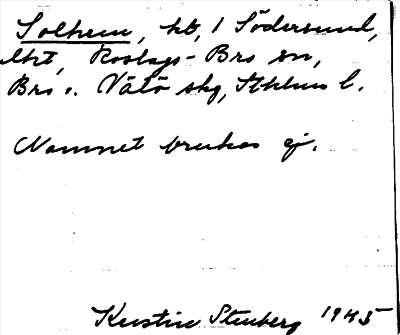 Solhem, ht, 1 Södersund,
lht, Roslags-Bro sn,
Bro o. Vätö skg, Sthlms l.
Namnet brukas ej.
Kerstin Stenberg 1945